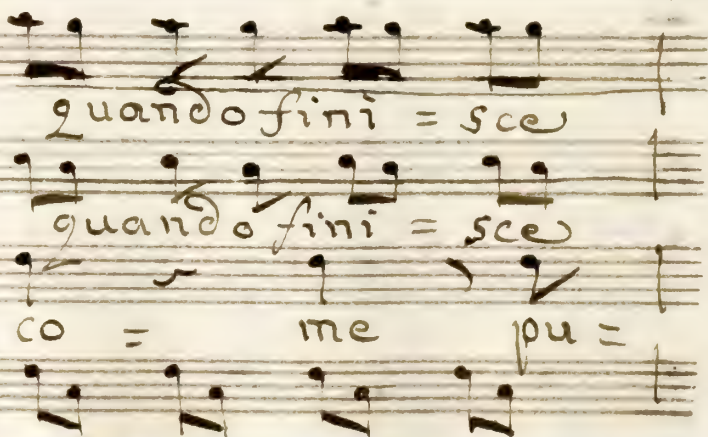 quando fini = sce
quando fini = sce
co = me pu =